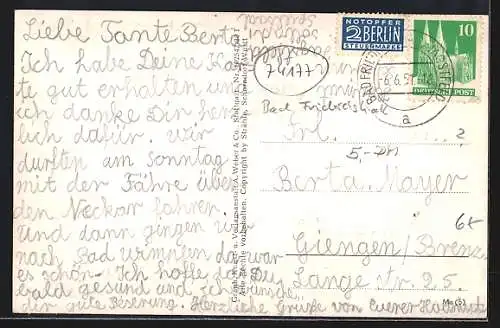 Liebe Tante Berta
Ich habe Deine Kar
te gut erhalten und
ich danke Dir herz
lich dafür. Wir
durften am Sonntag
mit der Fähre über
den Neckar fahren
und dann gingen wir
nach Bad Wimpfen da war
es schön. Ich hoffe das Du
bald gesund und ich wünsche
der gute Besserung. Herzliche Grüße von Euerer
NOTOPFER
2 BERLIN
STEUERMARKE
10
DEUTSCHE POST
BAD FRIEDRICHSHALL
6.6.51
a
74177
Bad Friedrichshall
2
5,- DM
Frl.
Berta Mayer
6x
Giengen/Brenz
Lange Str. 25.
Graph. Kunst- u. Verlagsanstalt A. Weber & Co., Stuttgart
Alle Rechte vorbehalten. Copyright by Strähle, Schorndorf/Württ